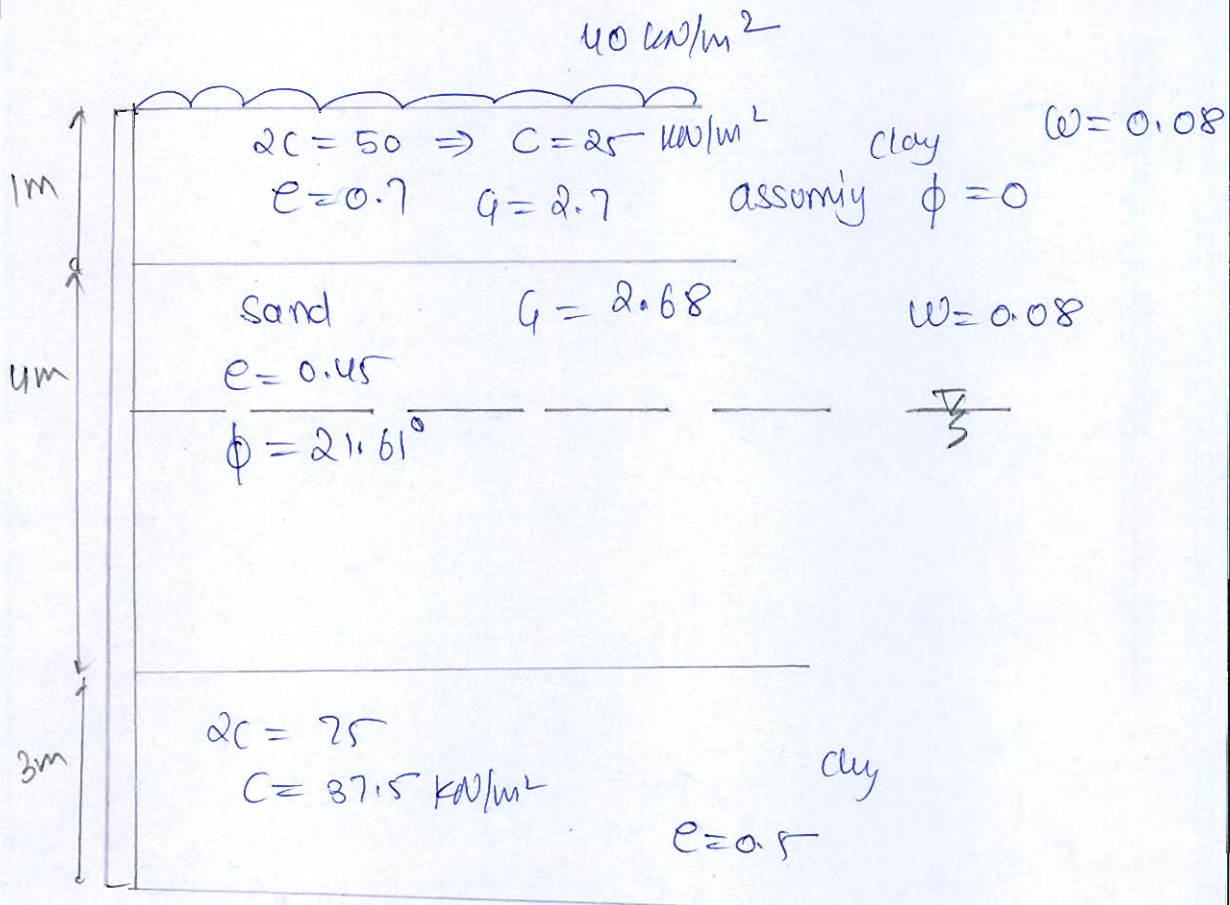 40 kN/m²
2C = 50 ⇒ C = 25 kN/m² Clay ω = 0.08
1m e = 0.7 G = 2.7 assumiy ϕ = 0
Sand G = 2.68 ω = 0.08
4m e = 0.45
ϕ = 21.61°
2C = 75
3m C = 37.5 kN/m² Clay
e = 0.5